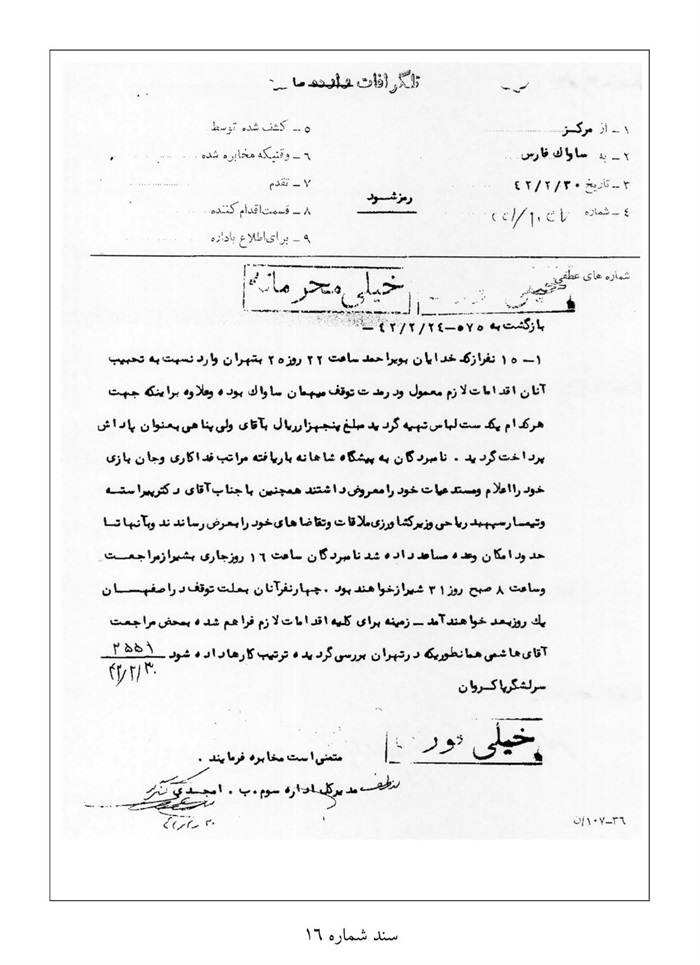 تلگرافات
۱ـ از مرکز
۲ـ به ساواک فارس
۳ـ تاریخ ۴۲/۲/۳۰
۴ـ شماره
رمز شود
۵ـ کشف شده توسط
۶ـ وقتیکه مخابره شده
۷ـ تقدم
۸ـ قسمت اقدام کننده
۹ـ برای اطلاع باداره
شماره های عطفی
خیلی محرمانه
بازگشت به ۵۷۵-۴۲/۲/۲۴ـ
۱ـ ۱۵ نفر از کدخدایان بویراحمد ساعت ۲۲ روز ۲۵ بتهران وارد نسبت به تحبیب
آنان اقدامات لازم معمول و در مدت توقف میهمان ساواک بوده و علاوه بر اینکه جهت
هرکدام یکدست لباس تهیه گردید مبلغ پنجهزار ریال بآقای ولی پناهی بعنوان پاداش
پرداخت گردید . نامبردگان به پیشگاه شاهانه باریافته مراتب فداکاری و جان بازی
خود را اعلام و مستدعیات خود را معروض داشتند همچنین با جناب آقای دکتر پیراسته
و تیمسار سپهبد ریاحی وزیر کشاورزی ملاقات و تقاضاهای خود را بعرض رساندند و بآنها تا
حدود امکان وعده مساعد داده شد نامبردگان ساعت ۱۶ روز جاری بشیراز مراجعت
و ساعت ۸ صبح روز ۳۱ شیراز خواهند بود . چهار نفر آنان بعلت توقف در اصفهان
یک روز بعد خواهند آمد ـ زمینه برای کلیه اقدامات لازم فراهم شده بمحض مراجعت
آقای هاشمی همانطوریکه در تهران بررسی گردیده ترتیب کارها داده شود
۲۵۵۱
۴۲/۲/۳۰
سرلشگر پاکروان
خیلی
متمنی است مخابره فرمایند .
مدیرکل اداره سوم . ب . امجدی
۳۶-۱۰۷/ن
سند شماره ۱۶